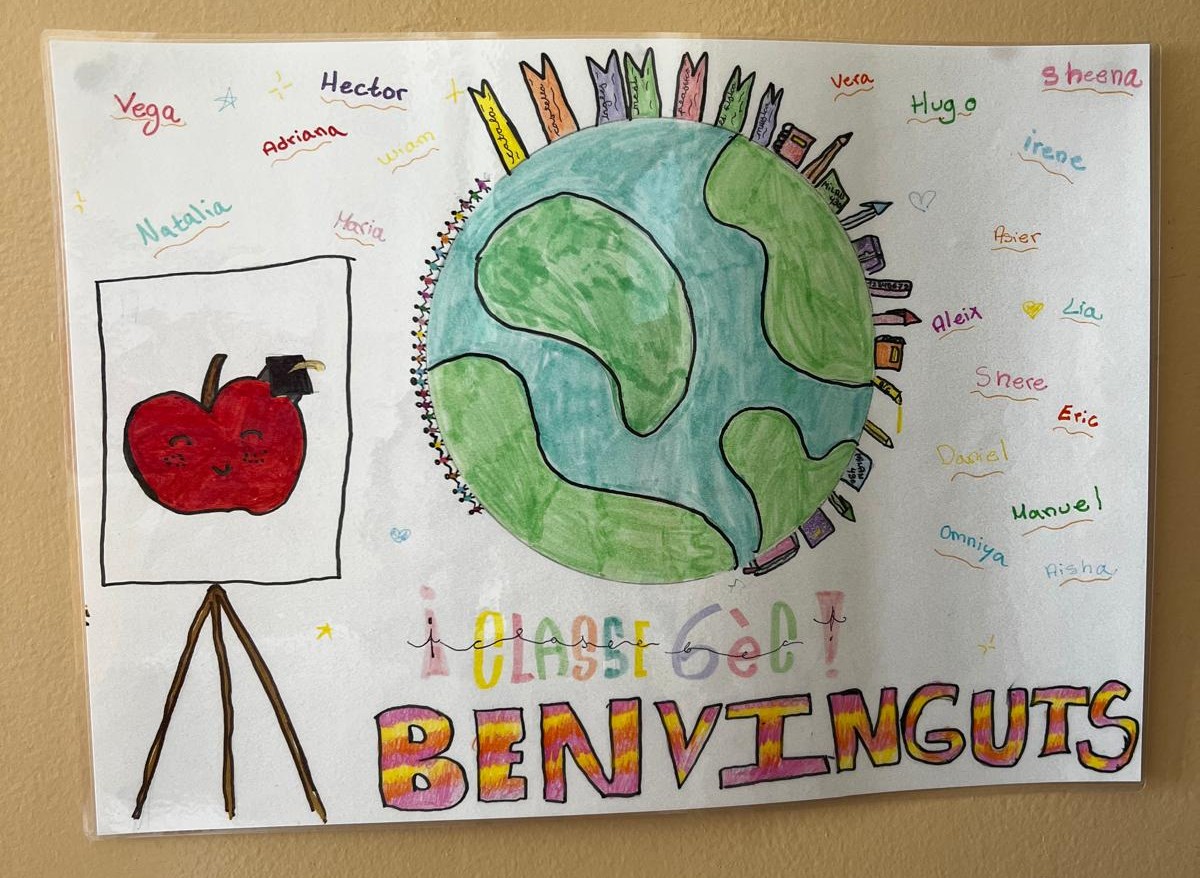 Vega
Hector
Adriana
Wiam
Natalia
Maria
Vera
Hugo
Sheena
irene
Asier
Aleix
Lia
Shere
Eric
Daniel
Manuel
Omniya
Aisha
català
¡CLASSE 6èC!
¡classe 6èc!
BENVINGUTS